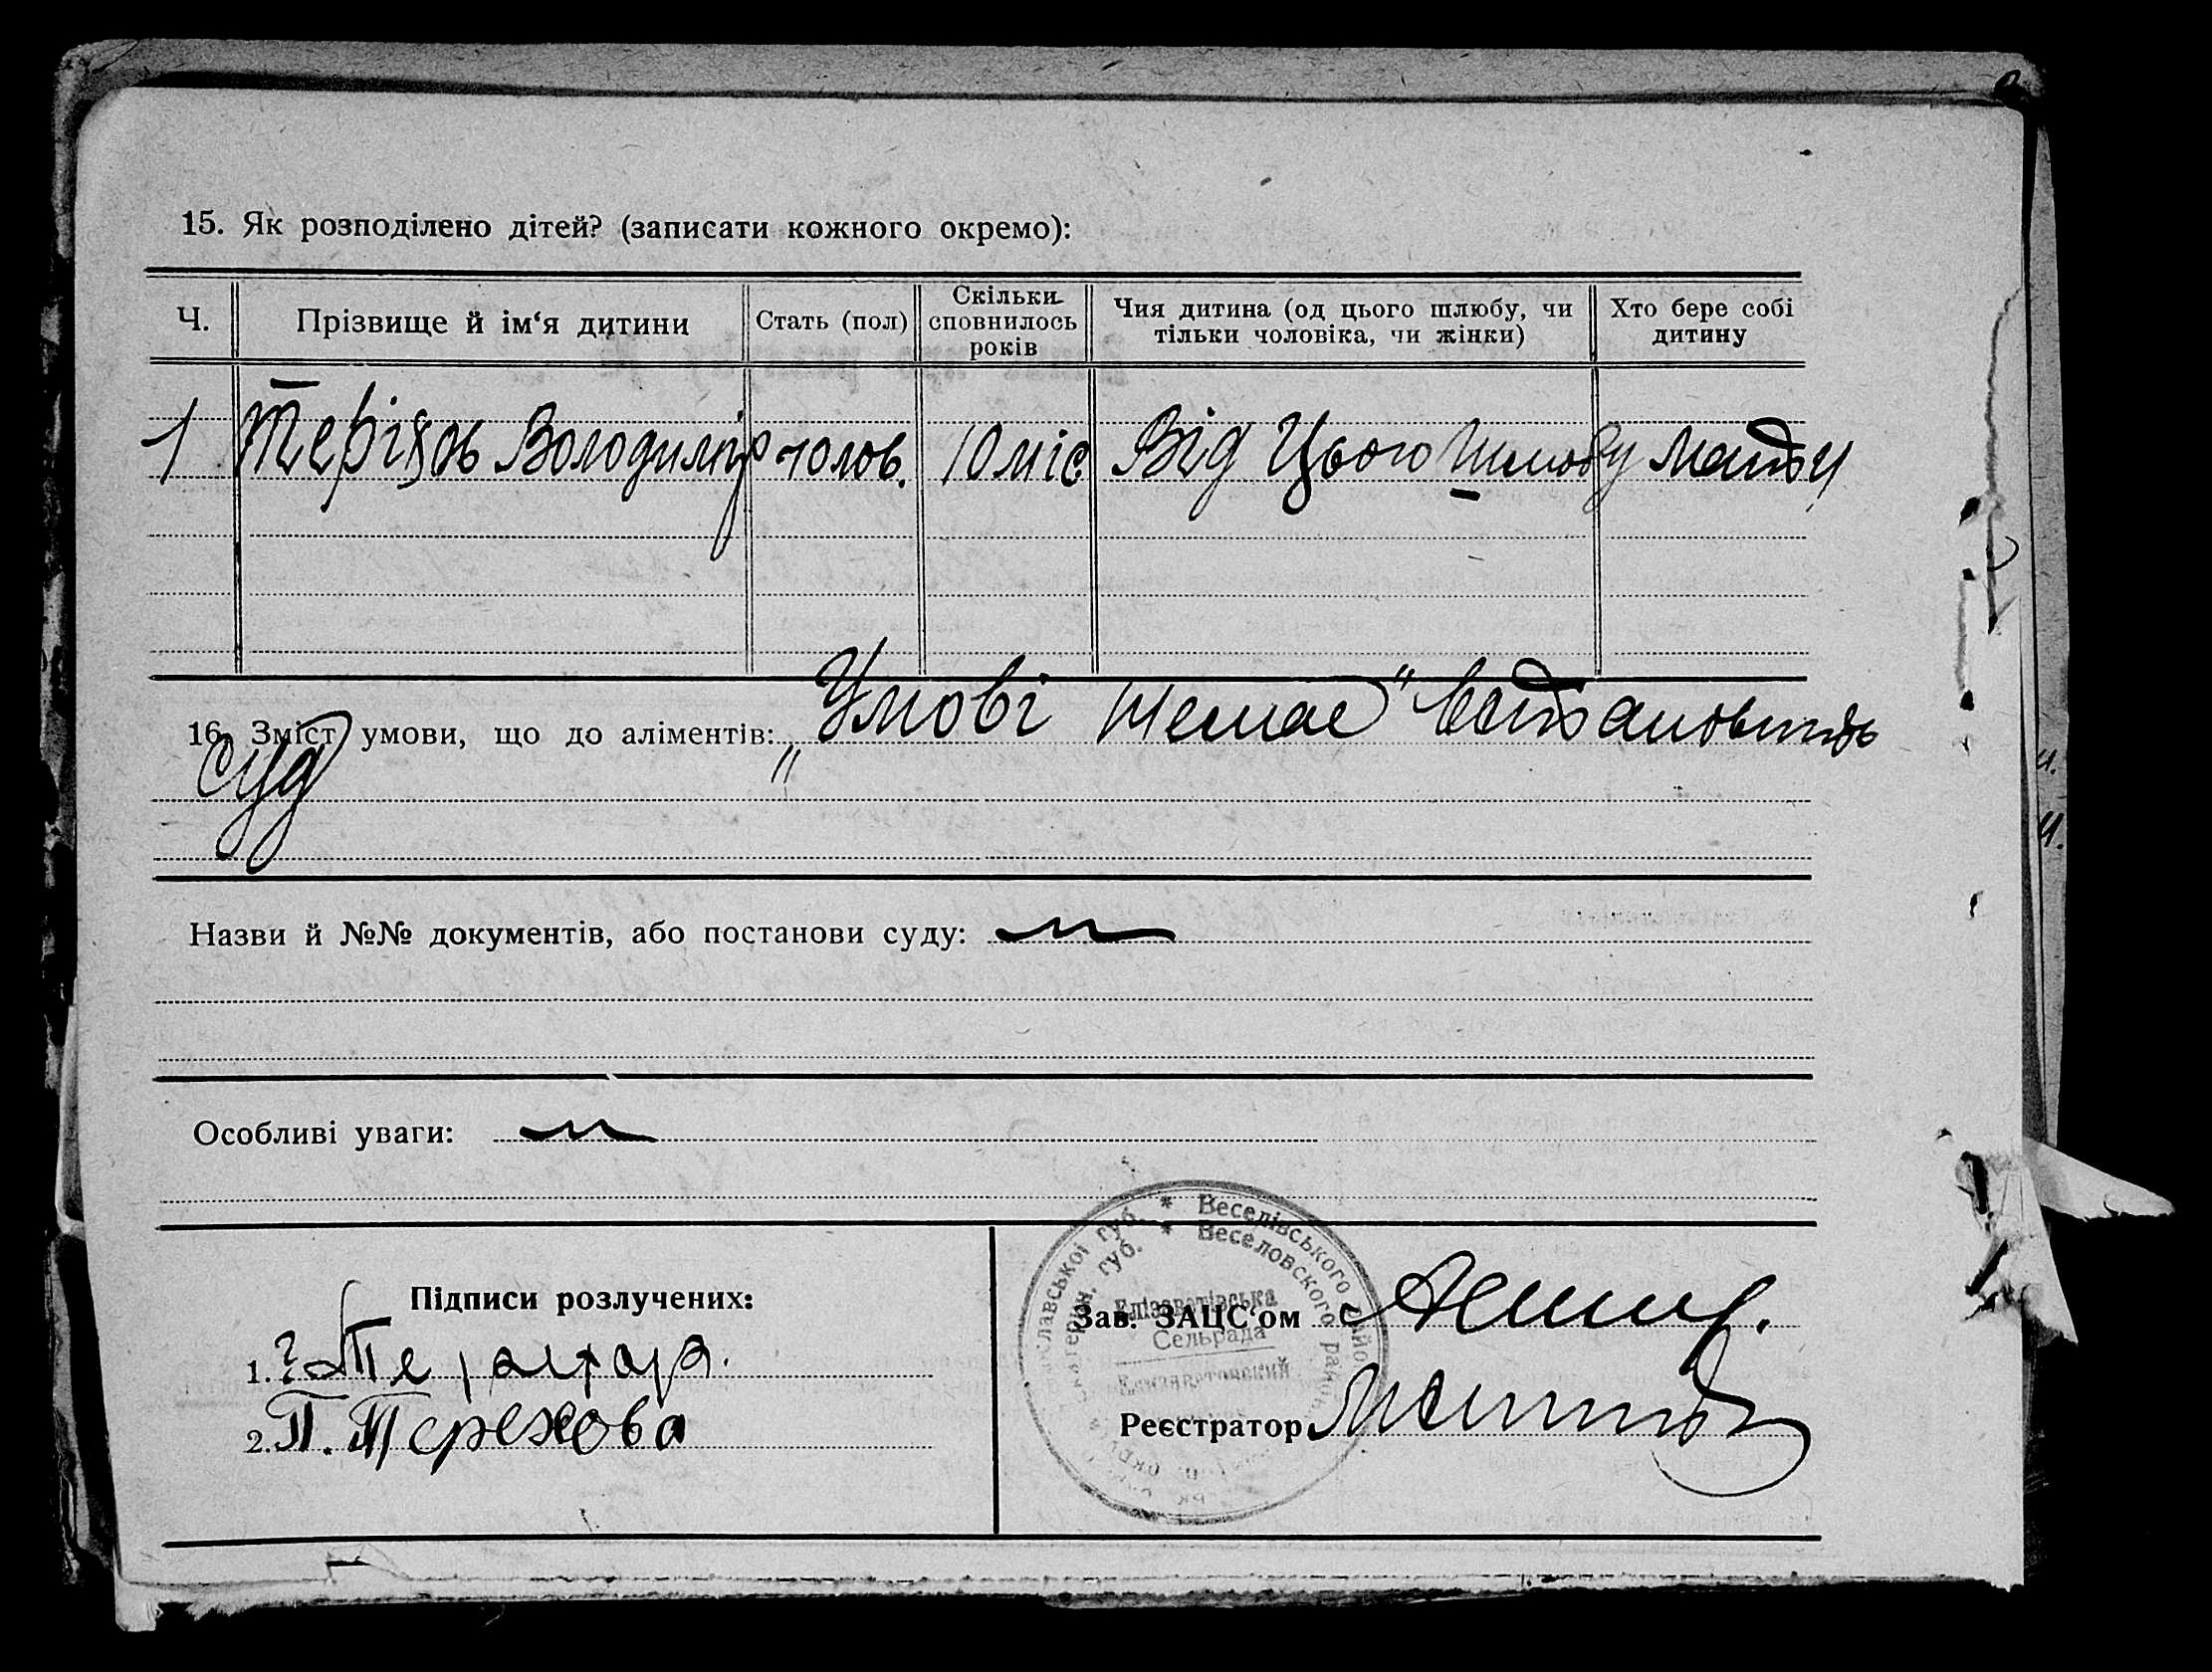 15. Як розподілено дітей? (записати кожного окремо):
Ч.
Прізвище й ім‘я дитини
Стать (пол)
Скільки сповнилось років
Чия дитина (од цього шлюбу, чи тільки чоловіка, чи жінки)
Хто бере собі дитину
1 Володимір чолов. 10 міс. Від Цього шлюбу
16. Зміст умови, що до аліментів: „Умові немає"
суд
Назви й №№ документів, або постанови суду:
Особливі уваги:
Підписи розлучених:
1.
2. П. Терехова
Зав. ЗАЦС‘ом
Реєстратор
славської губ. * Веселівського райо
губ. * Веселовского райо
Елізаветівська
Сельрада
Елизаветовский